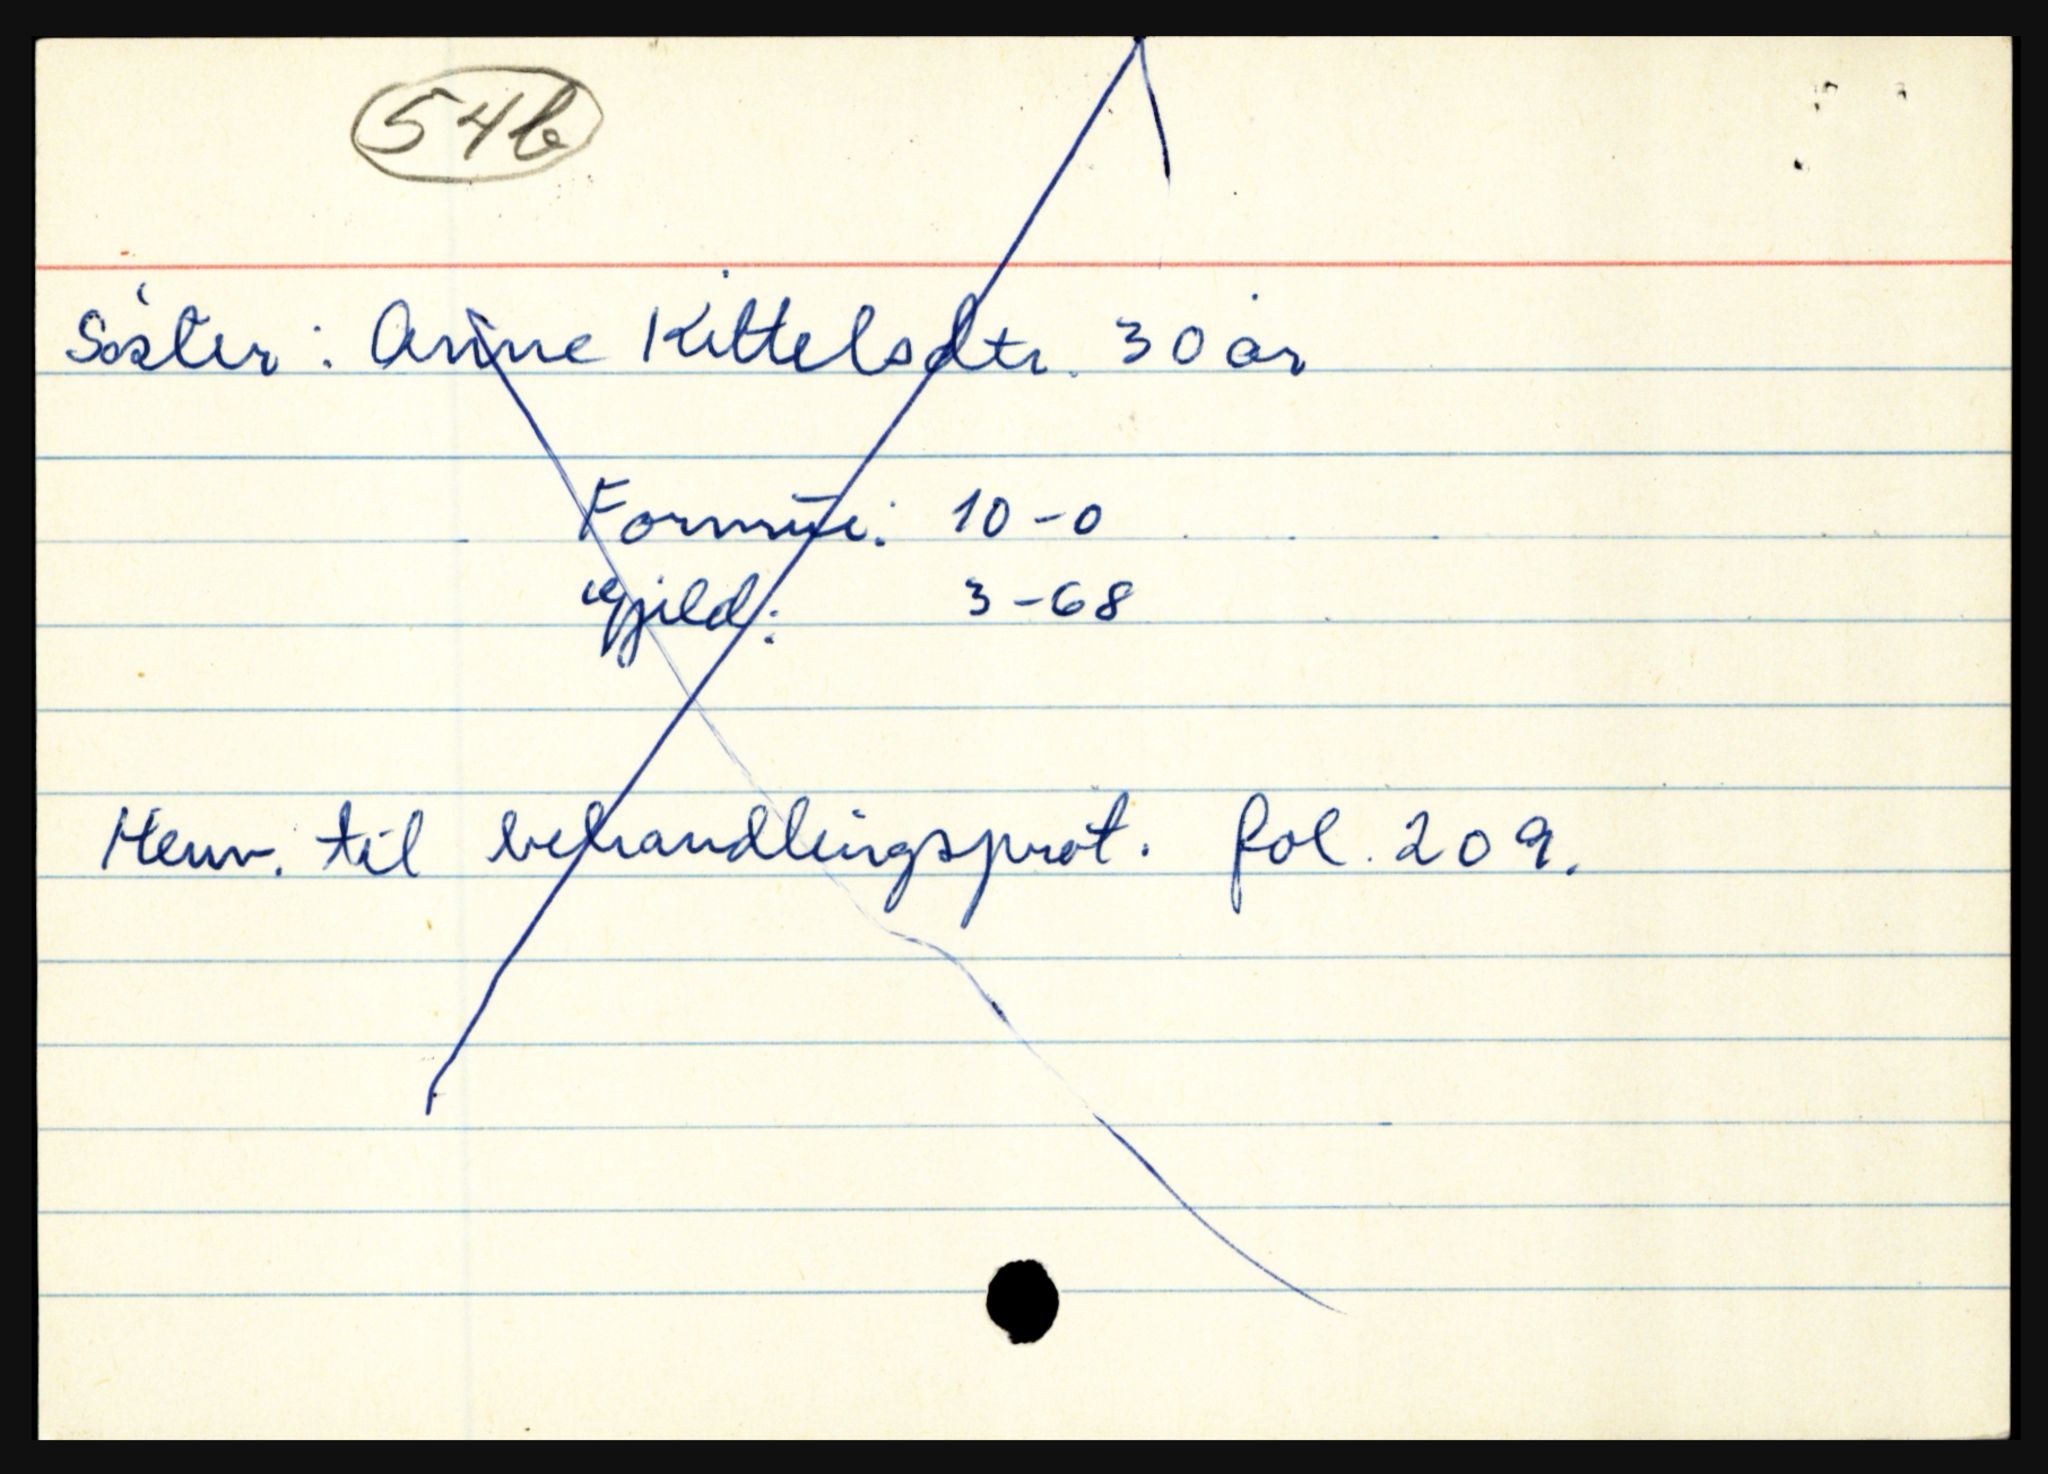 54b
Søster: Anne Kittelsdtr. 30 år
Formue: 10-0
Gjeld: 3-68
Henv. til behandlingsprot. fol. 209.